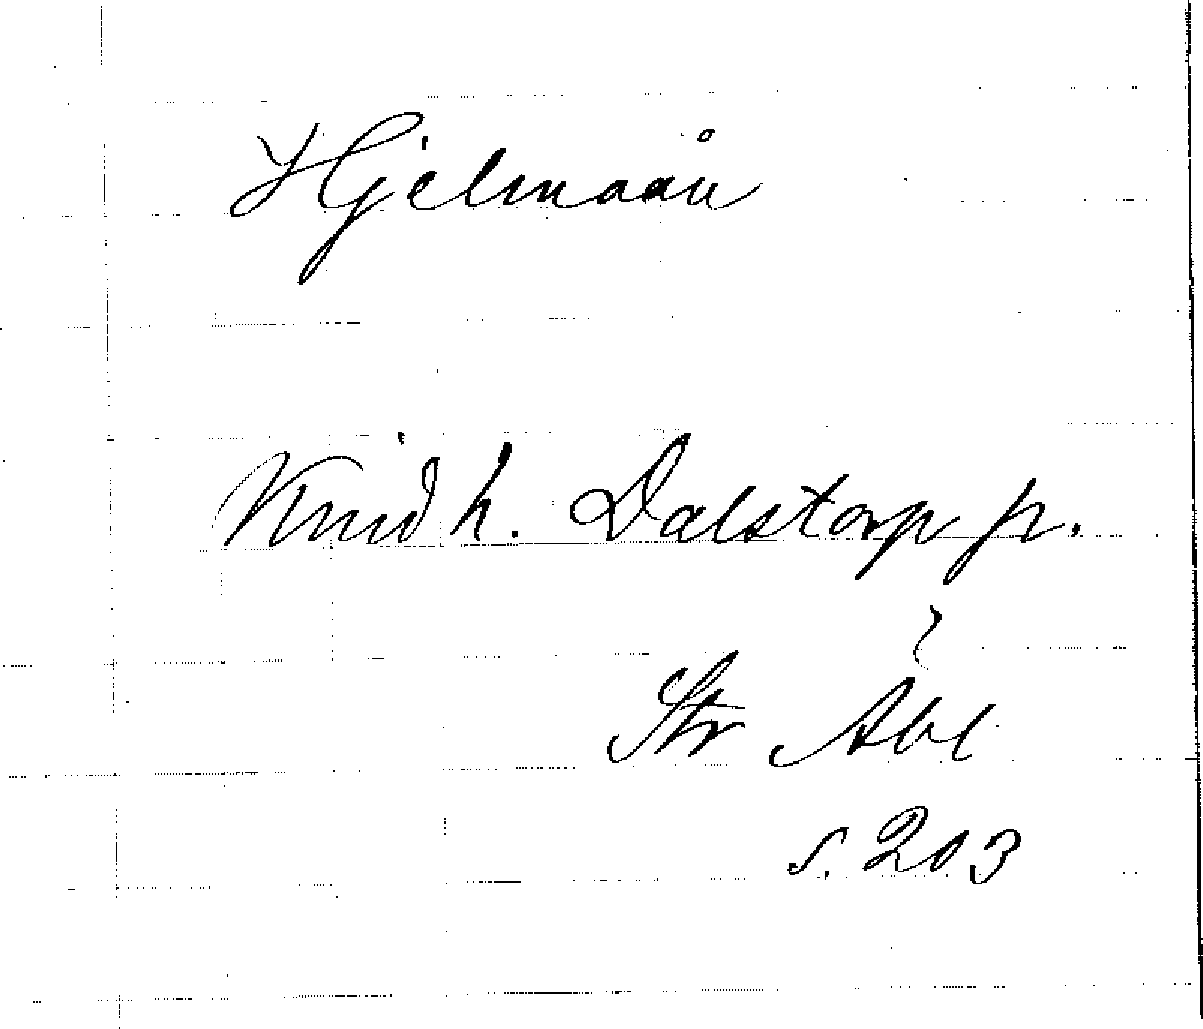 Hjelmaån
Kind h. Dalstorp p.
Str Abl
s. 203